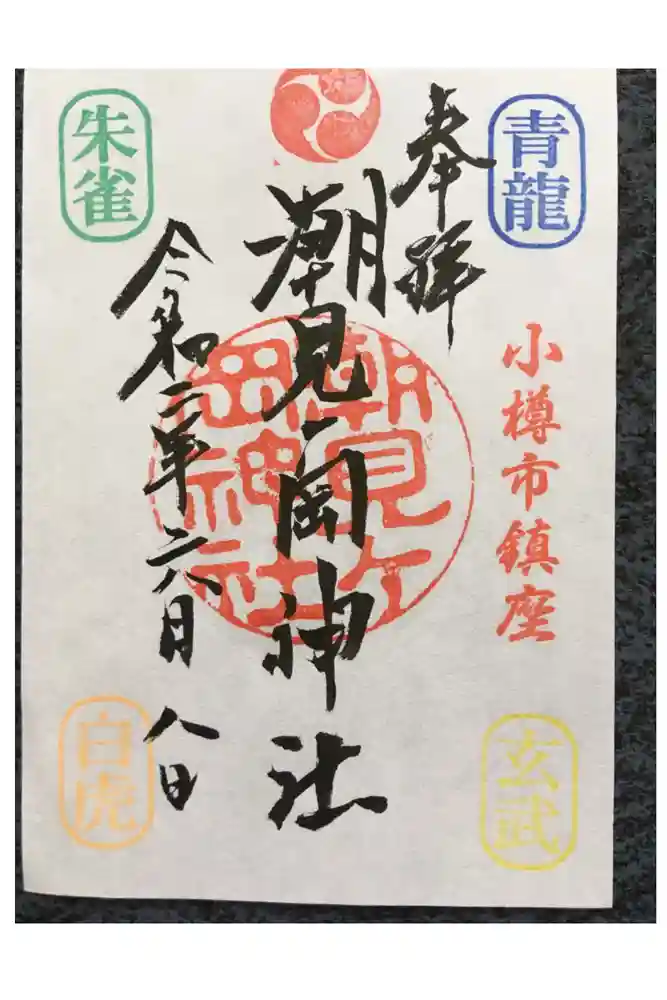 青龍
小樽市鎮座
玄武
奉拝
潮見ヶ岡神社
潮見ケ
岡神社
令和二年六月八日
朱雀
白虎